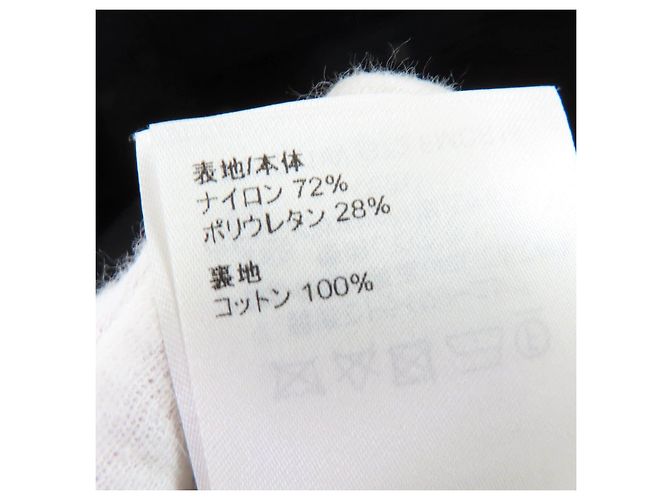 表地/本体
ナイロン 72%
ポリウレタン 28%
裏地
コットン 100%